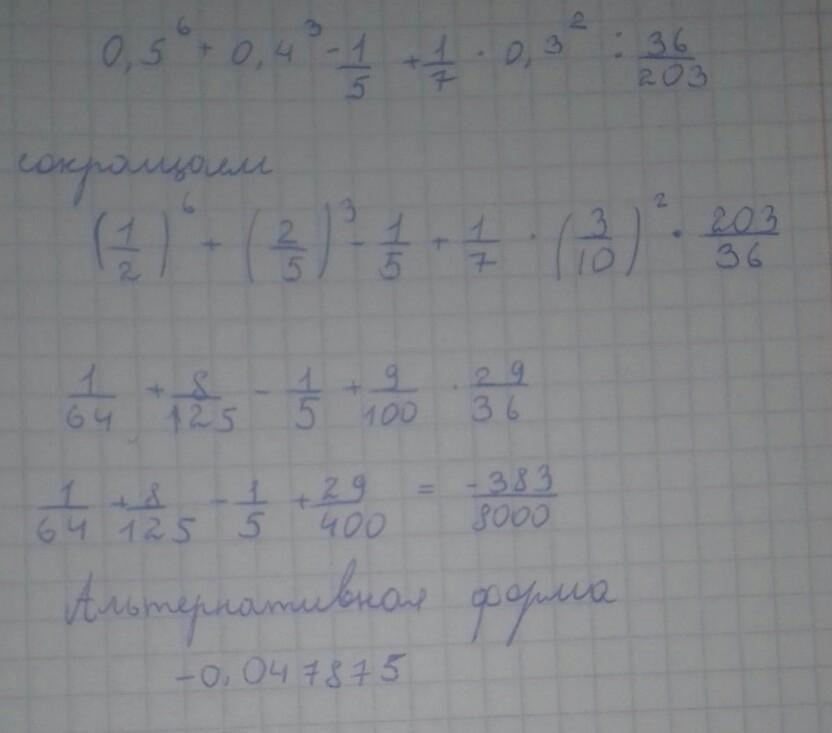 0,5⁶ + 0,4³ - 1/5 + 1/7 · 0,3² : 36/203
сокращаем
(1/2)⁶ + (2/5)³ - 1/5 + 1/7 · (3/10)² · 203/36
1/64 + 8/125 - 1/5 + 9/100 · 29/36
1/64 + 8/125 - 1/5 + 29/400 = -383/8000
Альтернативная форма
-0,047875